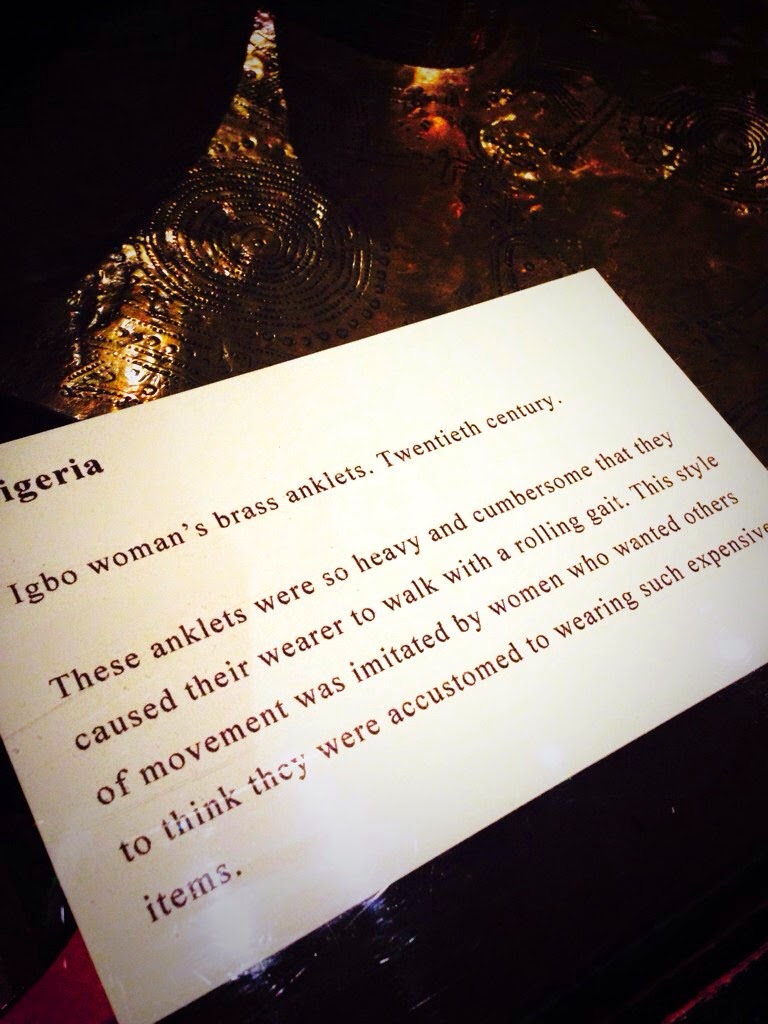 igeria
Igbo woman's brass anklets. Twentieth century.
These anklets were so heavy and cumbersome that they
caused their wearer to walk with a rolling gait. This style
of movement was imitated by women who wanted others
to think they were accustomed to wearing such expensive
items.